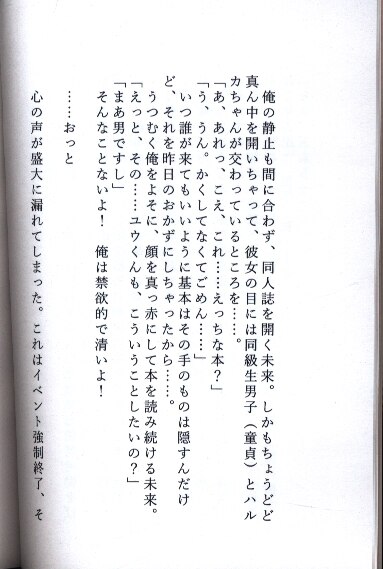 俺の静止も間に合わず、同人誌を開く未来。しかもちょうどど
真ん中を開いちゃって、彼女の目には同級生男子（童貞）とハル
カちゃんが交わっているところを……。
「あ、あれっ、こえ、これ……えっちな本？」
「う、うん。かくしてなくてごめん……」
いつ誰が来てもいいように基本はその手のものは隠すんだけ
ど、それを昨日のおかずにしちゃったから……。
うつむく俺をよそに、顔を真っ赤にして本を読み続ける未来。
「えっと、その……ユウくんも、こういうことしたいの？」
「まあ男ですし」
そんなことないよ！　俺は禁欲的で清いよ！
……おっと
心の声が盛大に漏れてしまった。これはイベント強制終了、そ